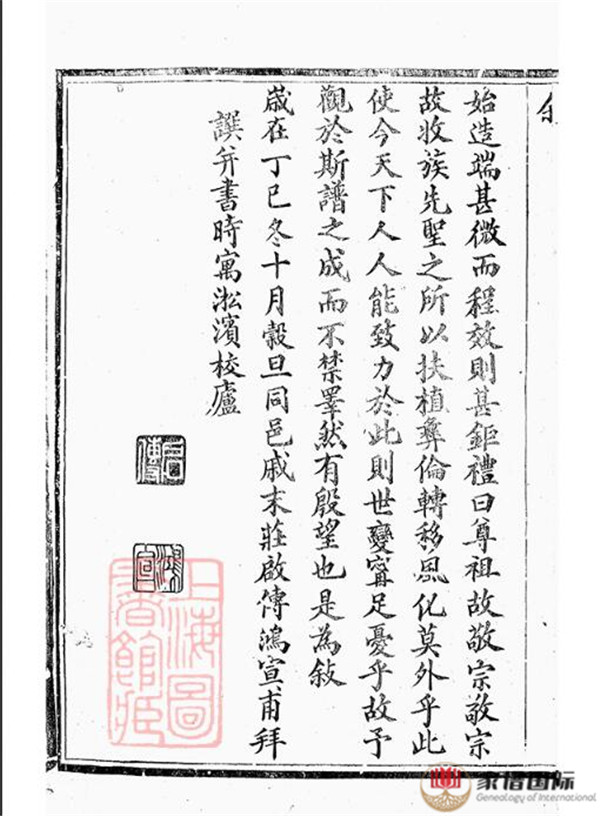 始造端甚微而程效則甚鉅禮曰尊祖故敬宗敬宗
故收族先聖之所以扶植彝倫轉移風化莫外乎此
使今天下人人能致力於此則世變寧足憂乎故予
觀於斯譜之成而不禁睪然有殷望也是為敍
歲在丁巳冬十月穀旦同邑戚末莊啟傳鴻宣甫拜
譔并書時寓淞濱校廬
啟傳
鴻宣
上海圖書館藏
家谱国际
Genealogy of International